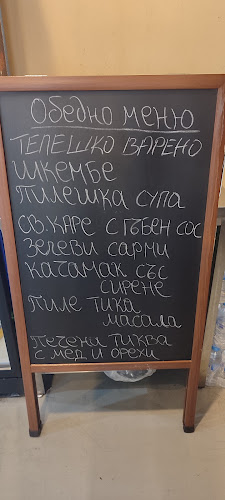 Обедно меню
ТЕЛЕШКО ВАРЕНО
ШКЕМБЕ
ПИЛЕШКА СУПА
СВ. КАРЕ С ГЪБЕН СОС
ЗЕЛЕВИ САРМИ
КАЧАМАК СЪС
СИРЕНЕ
ПИЛЕ ТИКА
МАСАЛА
ПЕЧЕНИ ТИКВА
С МЕД И ОРЕХИ